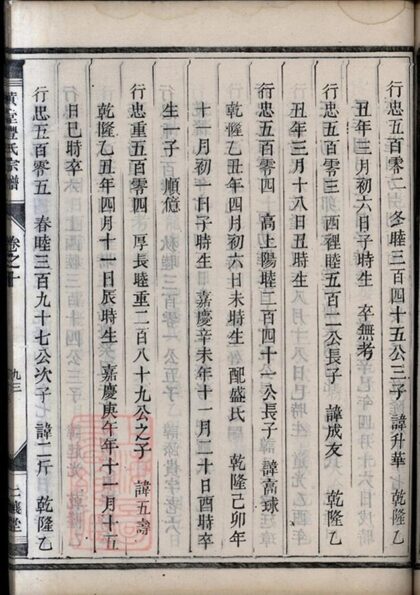 行忠五百零二　冬睦三百四十五公三子　諱升華　乾隆乙
丑年三月初六日子時生　卒無考
行忠五百零三　西裡睦五百二公長子　諱成友　乾隆乙
丑年三月十八日丑時生
行忠五百零四　高上陽睦三百四十一公長子　諱高球
乾隆乙丑年四月初六日未時生　配盛氏　乾隆己卯年
十一月初一日子時生　嘉慶辛未年十一月二十日酉時卒
生一子　順億
行忠重五百零四　厚長睦重二百八十九公之子　諱五壽
乾隆乙丑年四月十一日辰時生　嘉慶庚午年十一月十五
日巳時卒
行忠五百零五　春睦三百九十七公次子　諱二斤　乾隆乙
黃堂豐氏宗譜　卷之十　九三